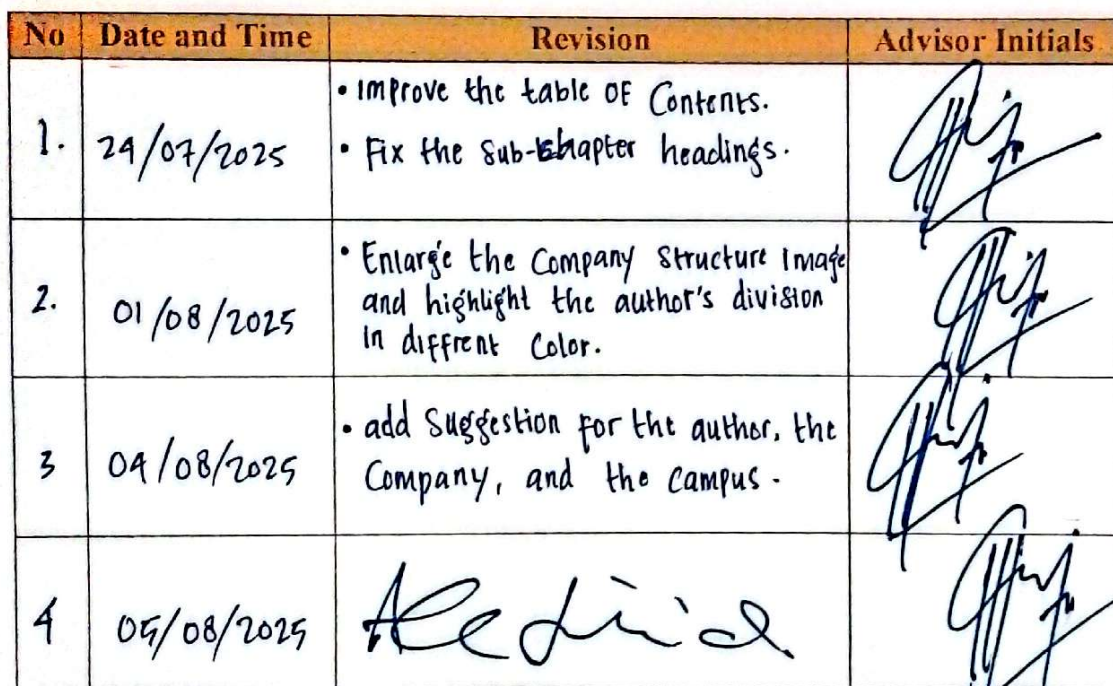 No Date and Time Revision Advisor Initials
1. 24/07/2025
• Improve the table of Contents.
• Fix the Sub-chapter headings.
2. 01/08/2025
• Enlarge the Company Structure Image
and highlight the author's division
in diffrent Color.
3 04/08/2025
• add Suggestion for the author, the
Company, and the campus.
4 05/08/2025
Acc Jilid.